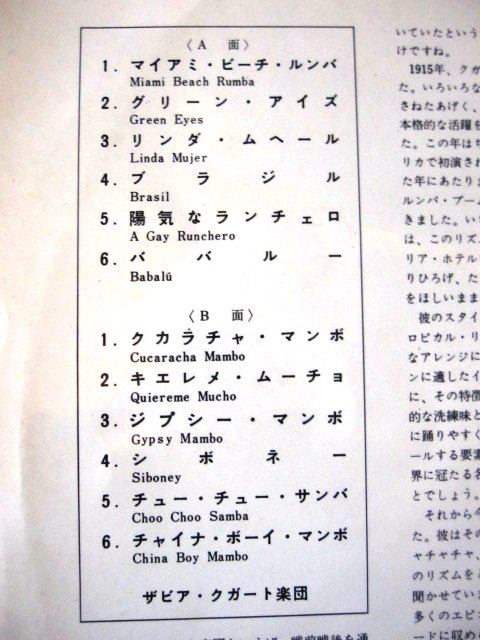 〈A 面〉
1. マイアミ・ビーチ・ルンバ
Miami Beach Rumba
2. グリーン・アイズ
Green Eyes
3. リンダ・ムヘール
Linda Mujer
4. ブラジル
Brasil
5. 陽気なランチェロ
A Gay Runchero
6. ババルー
Babalú
〈B 面〉
1. クカラチャ・マンボ
Cucaracha Mambo
2. キエレメ・ムーチョ
Quiereme Mucho
3. ジプシー・マンボ
Gypsy Mambo
4. シボネー
Siboney
5. チュー・チュー・サンバ
Choo Choo Samba
6. チャイナ・ボーイ・マンボ
China Boy Mambo
ザビア・クガート楽団
いていたという
けですね。
1915年、クガ
た。いろいろな
さねたあげく、
本格的な活躍を
た。この年は
リカで初演され
た年にあたりま
ルンバ・ブーム
きました。い
は、このリズム
リア・ホテル
りひろげ、た
をほしいまま
彼のスタイ
ロピカル・リ
なアレンジに
ンに適したイ
に、その特徴
的な洗練味と
に踊りやすく
ールする要素
界に冠たる名
とでしょう。
それから今
た。彼はその
ャチャチャ、
のリズムを
聞かせてい
多くのエピ
ードに収め
戦前戦後を通